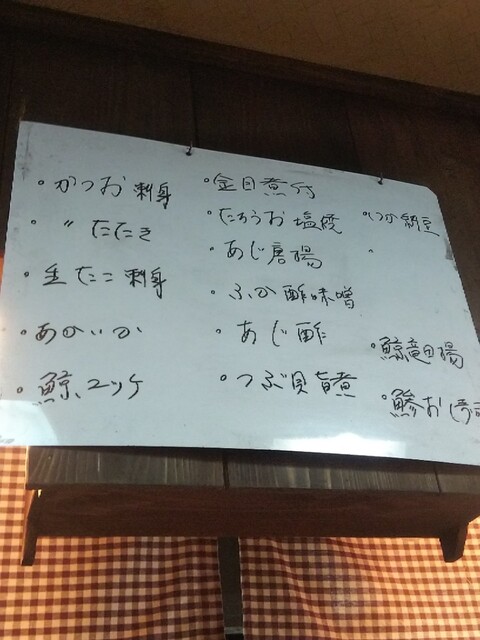 ・かつお刺身
・〃 たたき
・生たこ刺身
・あかいか
・鯨ユッケ
・金目煮付
・たちうお塩焼
・あじ唐揚
・ふか酢味噌
・あじ酢
・つぶ貝旨煮
・いか納豆
・鯨竜田揚
・鯵お